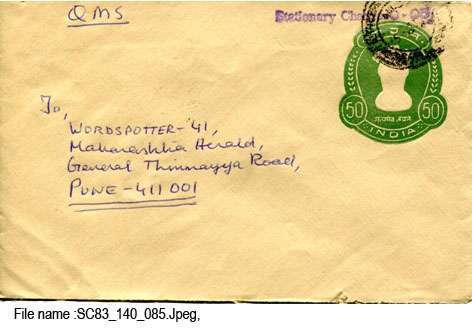 QMS
Stationary Cha
50 सत्यमेव जयते 50
INDIA
To,
WORDSPOTTER-41,
Maharashtra Herald,
General Thimmayya Road,
PUNE-411 001
File name :SC83_140_085.Jpeg,